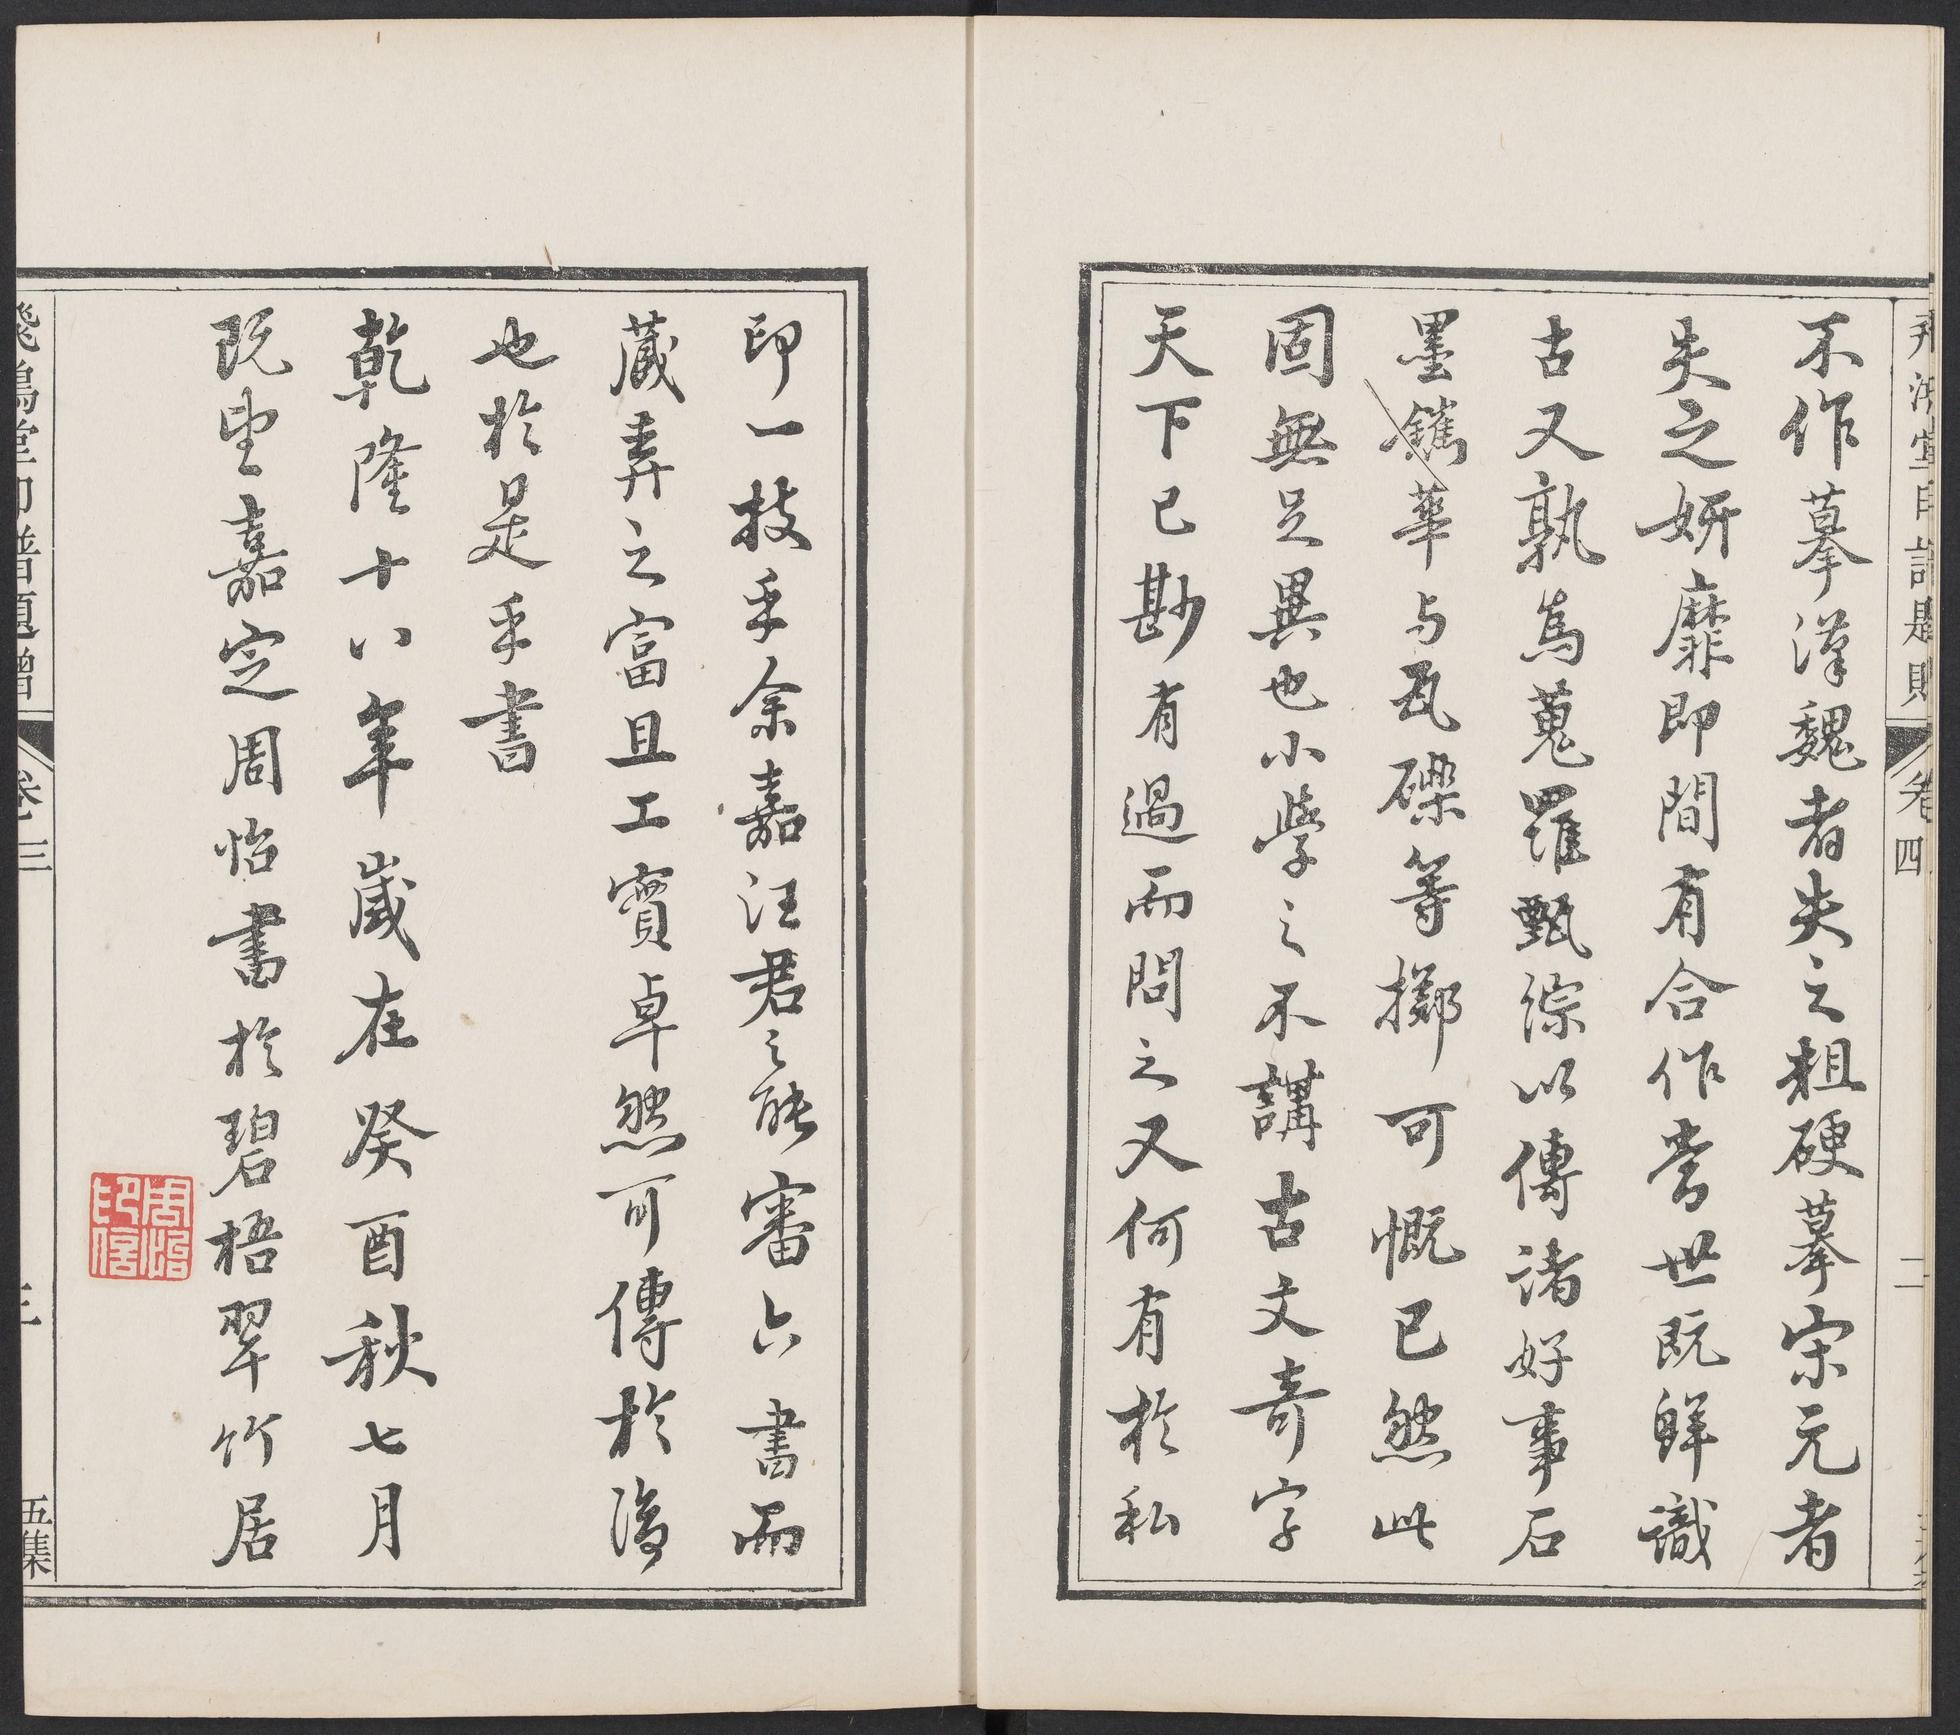 不作摹漢魏者失之粗硬摹宋元者
失之妍靡即間有合作當世既鮮識
古又孰為蒐羅甄綜以傳諸好事石
墨鐫華与瓦礫等擲可慨已然此
固無足異也小學之不講古文奇字
天下已尠有過而問之又何有於私
印一技乎余嘉汪君之能審六書而
藏弆之富且工實卓然可傳於後
也於是乎書
乾隆十八年歲在癸酉秋七月
既望嘉定周怡書於碧梧翠竹居
周怡
印信
飛鴻堂印譜題贈
卷三
三
五集
卷四
二